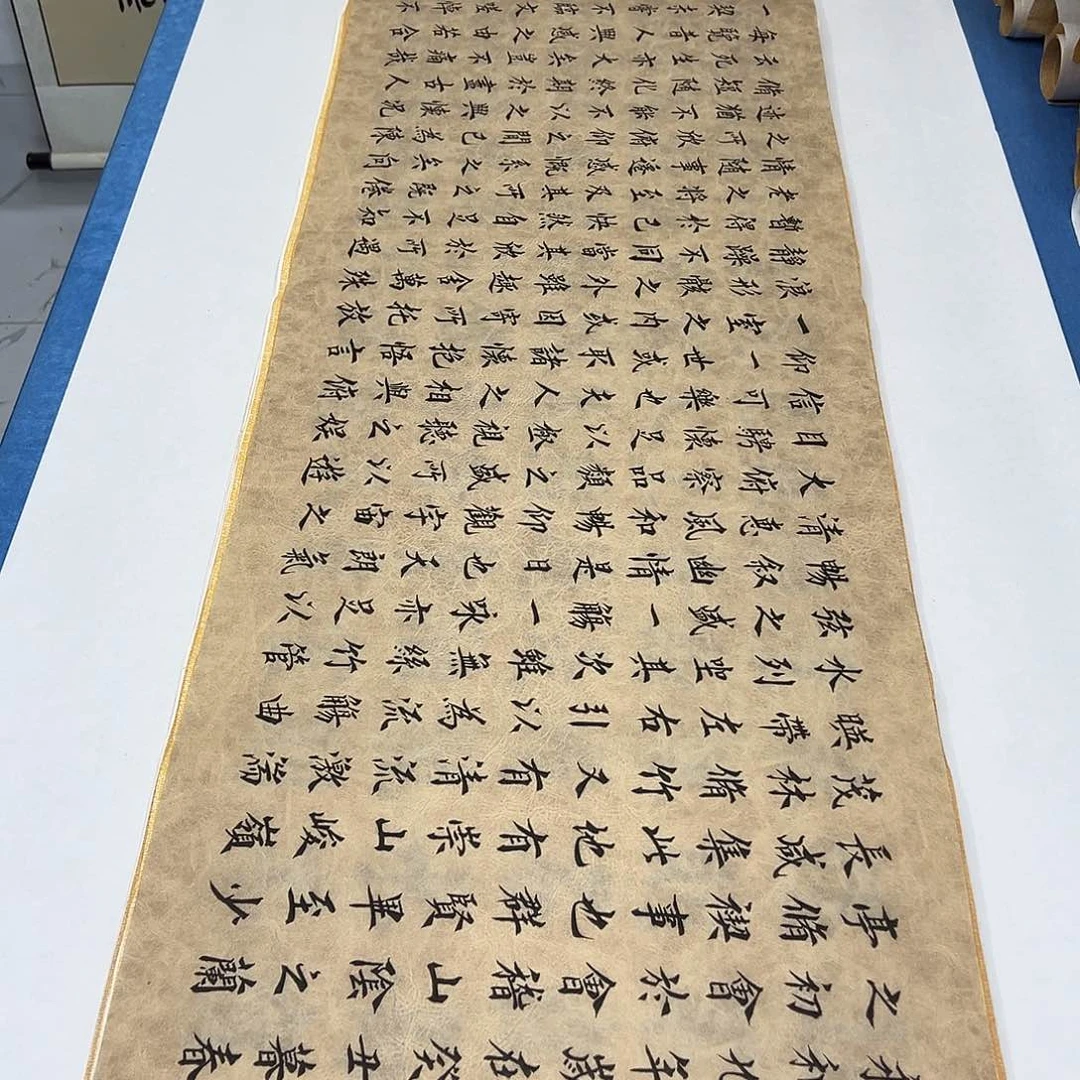 永和九年歲在癸丑暮春
之初會於會稽山陰之蘭
亭脩禊事也群賢畢至少
長咸集此地有崇山峻嶺
茂林脩竹又有清流激湍
暎帶左右引以為流觴曲
水列坐其次雖無絲竹管
弦之盛一觴一詠亦足以
暢叙幽情是日也天朗氣
清惠風和暢仰觀宇宙之
大俯察品類之盛所以遊
目騁懷足以極視聽之娛
信可樂也夫人之相與俯
仰一世或取諸懷抱悟言
一室之內或因寄所托放
浪形骸之外雖趣舍萬殊
靜躁不同當其欣於所遇
暫得於己快然自足不知
老之將至及其所之既倦
情隨事遷感慨系之矣向
之所欣俯仰之間已為陳
迹猶不能不以之興懷況
脩短隨化終期於盡古人
云死生亦大矣豈不痛哉
每覽昔人興感之由若合
一契未嘗不臨文嗟悼不